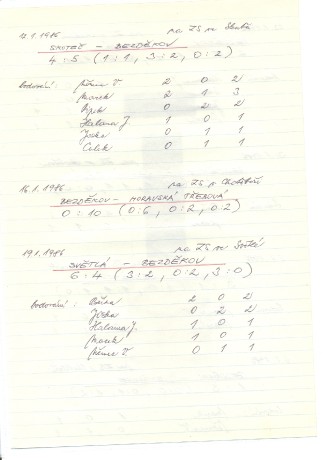 12.1.1986 na ZS ve
SKUTEČ - BEZDĚKOV
4:5 (1:1, 3:2, 0:2)
bodování: V. 2 0 2
Marek 2 1 3
0 2 2
Halama J. 1 0 1
Jirka 0 1 1
0 1 1
16.1.1986 na ZS v Chotěboři
BEZDĚKOV - MORAVSKÁ TŘEBOVÁ
0:10 (0:6, 0:2, 0:2)
19.1.1986 na ZS ve Světlé
SVĚTLÁ - BEZDĚKOV
6:4 (3:2, 0:2, 3:0)
bodování: 2 0 2
Jirka 0 2 2
Halama J. 1 0 1
Marek 1 0 1
V. 0 1 1